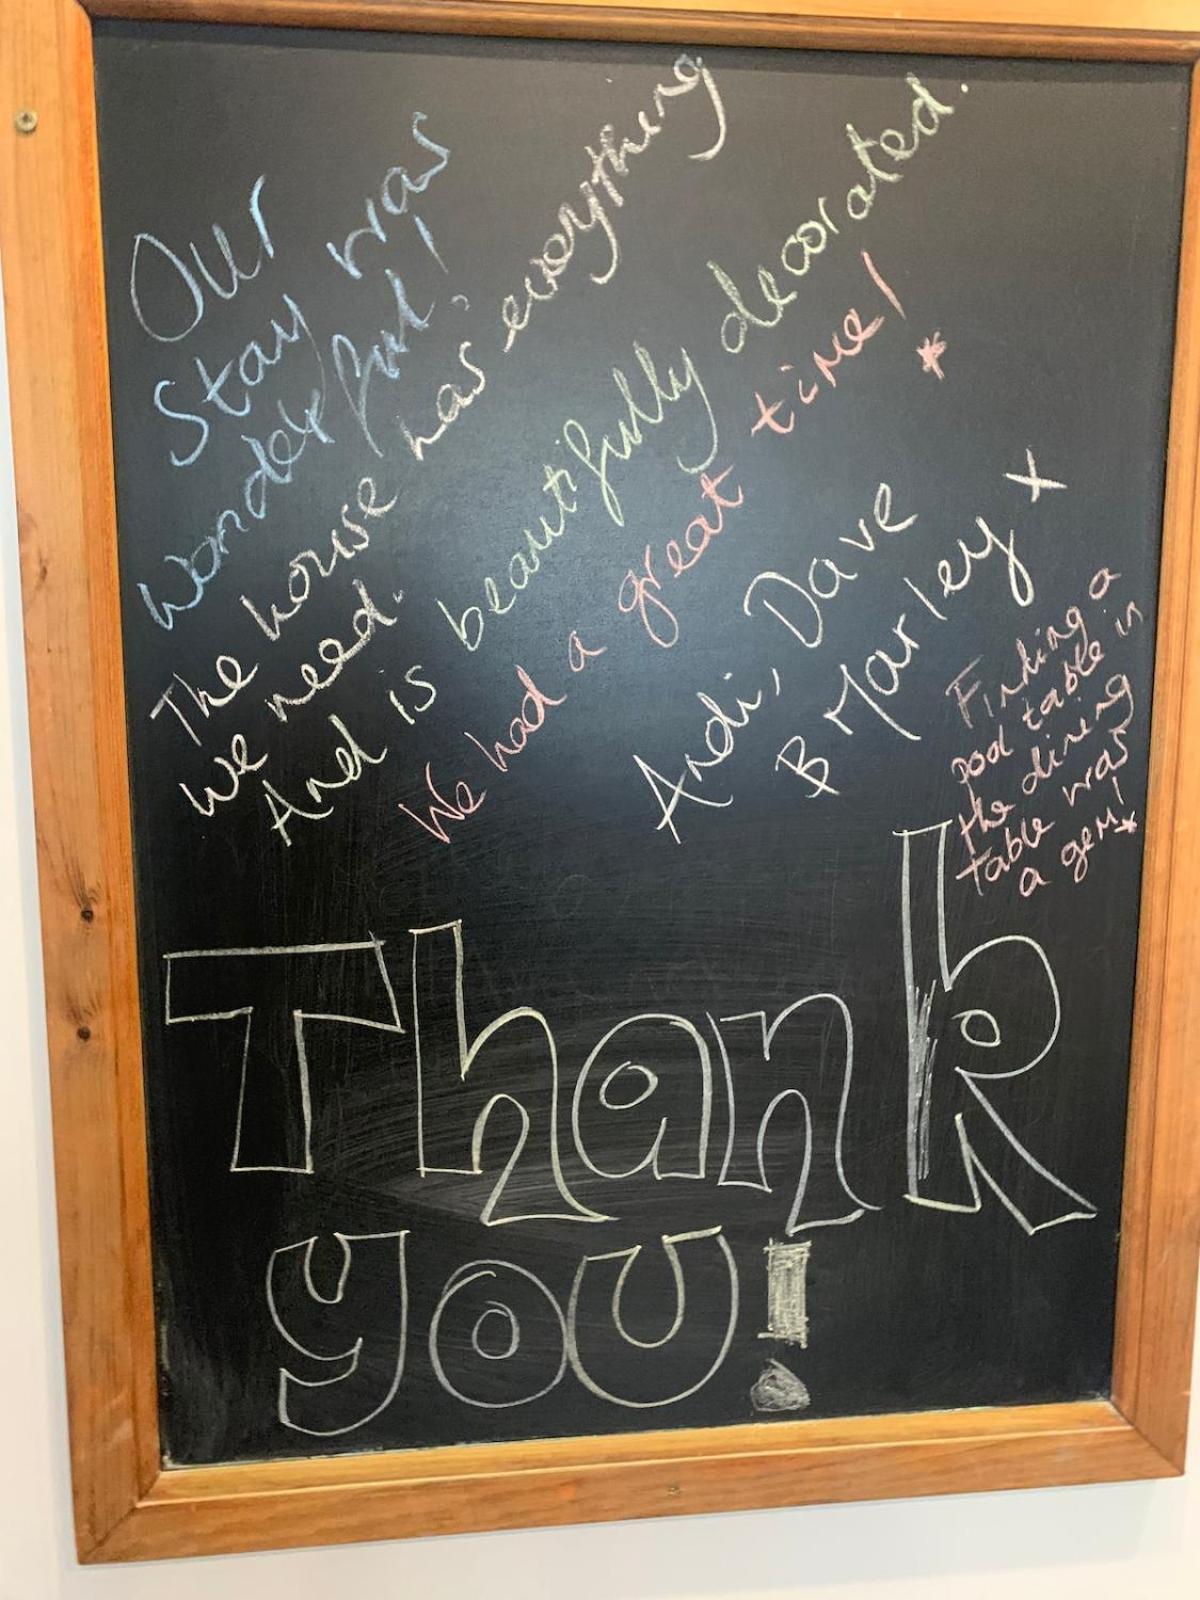 Our
Stay was
wonderful!
The house has everything
we need.
And is beautifully decorated.
We had a great time!
*
Andi, Dave
& Marley x
Finding a
pool table in
the dining
table was
a gem!*
Thank
you!